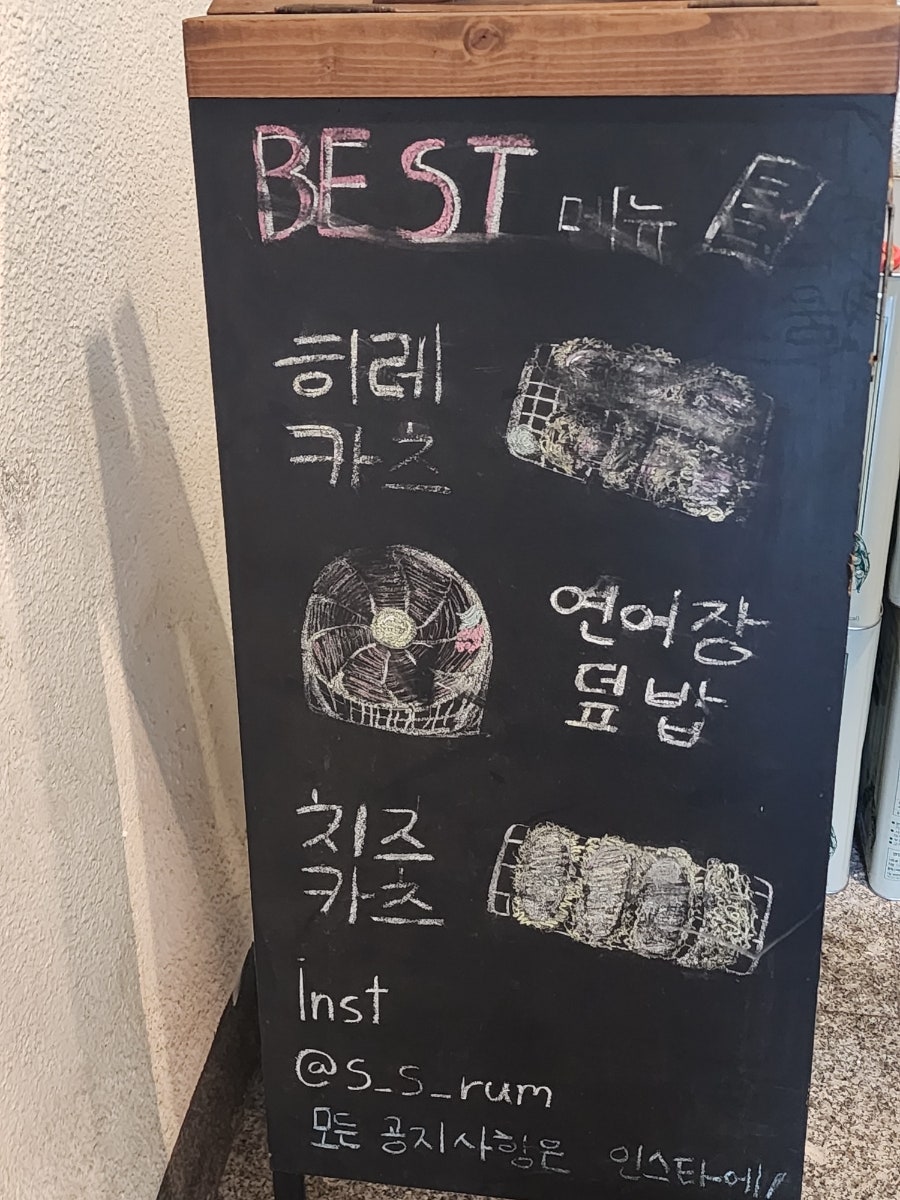 BEST 메뉴
히레
카츠
연어장
덮밥
치즈
카츠
Inst
@s_s_rum
모든 공지사항은 인스타에!